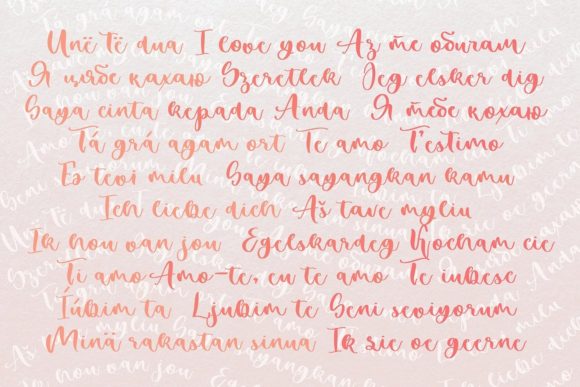 Unë të dua I love you Аз те обичам
Я цябе кахаю Szeretlek Jeg elsker dig
Saya cinta kepada Anda Я тебе кохаю
Tá grá agam ort Te amo T'estimo
Es tevi milu Saya sayangkan kamu
Ich liebe dich Aš tave myliu
Ik hou van jou Egelskardeg Kocham cie
Ti amo Amo-te, eu te amo Te iubesc
Ľúbim ta Ljubim te Seni seviyorum
Minä rakastan sinua Ik sie oe geerne